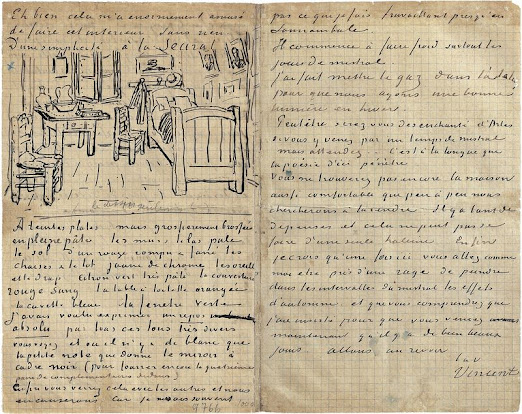 Eh bien cela m'a enormement amusé
de faire cet interieur sans rien
D'une simplicité à la Seurat
A teintes plates mais grossierement brossées
en pleine pâte les murs lilas pale
le sol d'un rouge rompu & fané les
chaises & le lit jaune de chrome les oreillers
et le drap citron vert très pale la couverture
rouge sang la table à toilette orangée
la cuvette bleue la fenetre verte
J'avais voulu exprimer un repos
absolu par tous ces tons très divers
vous voyez et où il n'y a de blanc que
la petite note que donne le miroir à
cadre noir (pour fourrer encore la quatrieme
paire de complementaires dedans)
Enfin vous verrez cela avec les autres et nous
en causerons car je ne sais souvent
pas ce que je fais travaillant presqu'en
somnambule
Il commence à faire froid surtout les
jours de mistral
J'ai fait mettre le gaz dans l'atelier
pour que nous ayons une bonne
lumière en hiver
Peutêtre serez vous desenchanté d'Arles
si vous y venez par un temps de mistral
mais attendez C'est à la longue que
la poésie d'ici pénètre
Vous ne trouverez pas encore la maison
aussi confortable que peu à peu nous
chercherons à la rendre Il y a tant de
depenses et cela ne peut pas se
faire d'une seule haleine Enfin
je crois qu'une fois ici vous allez comme
moi etre pris d'une rage de peindre
dans les intervalles du mistral les effets
d'automne et que vous comprendrez que
j'ai insisté pour que vous veniez
maintenant qu'il y a de bien beaux
jours allons au revoir
Vincent